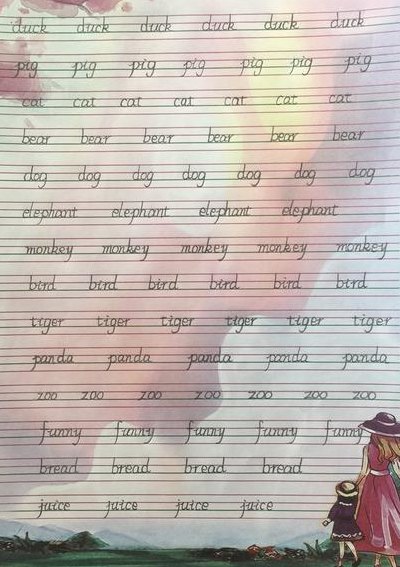 duck duck duck duck duck duck
pig pig pig pig pig pig pig
cat cat cat cat cat cat cat
bear bear bear bear bear bear
dog dog dog dog dog dog dog
elephant elephant elephant elephant
monkey monkey monkey monkey monkey
bird bird bird bird bird bird
tiger tiger tiger tiger tiger tiger
panda panda panda panda panda
zoo zoo zoo zoo zoo zoo zoo
funny funny funny funny funny
bread bread bread bread
juice juice juice juice